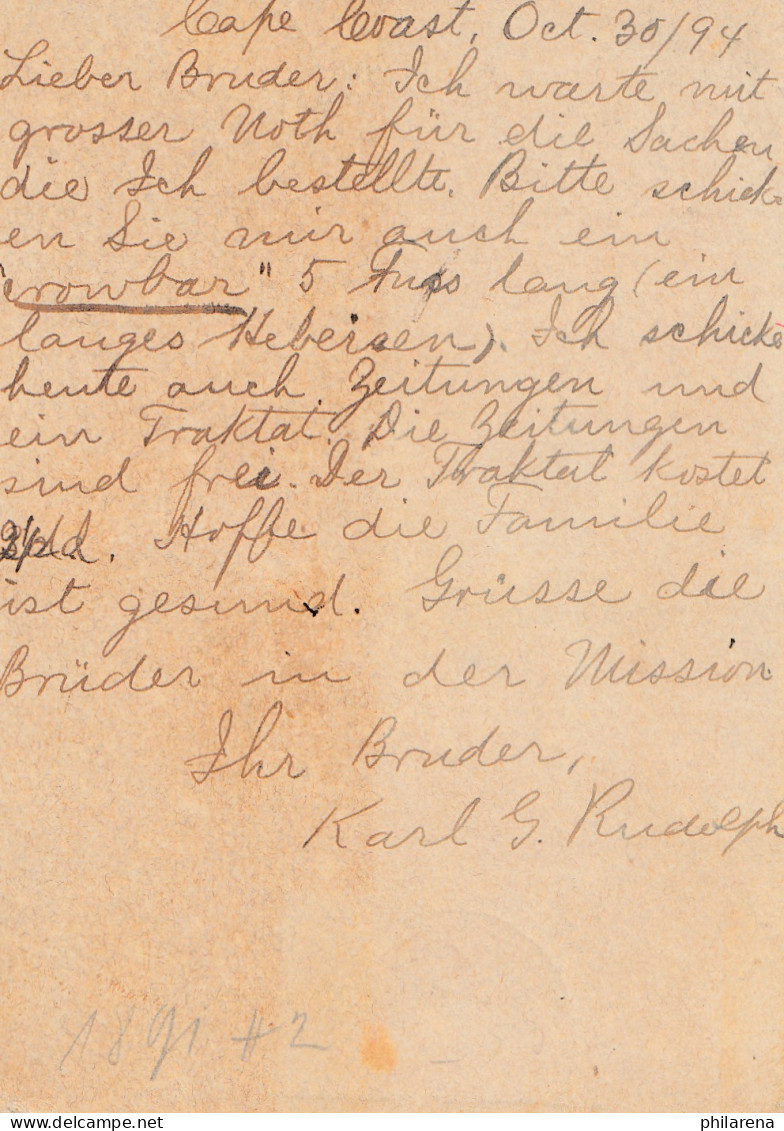 Cape Coast, Oct. 30/94
Lieber Bruder: Ich warte mit
grosser Noth für die Sachen
die Ich bestellte. Bitte schick-
en Sie mir auch ein
"crowbar" 5 Fuss lang (ein
langes Hebeisen). Ich schicke
heute auch Zeitungen und
ein Traktat. Die Zeitungen
sind frei. Der Traktat kostet
Hoffe die Familie
ist gesund. Grüsse die
Brüder in der Mission
Ihr Bruder,
Karl G. Rudolph
1891 # 2
delcampe.net
philarena